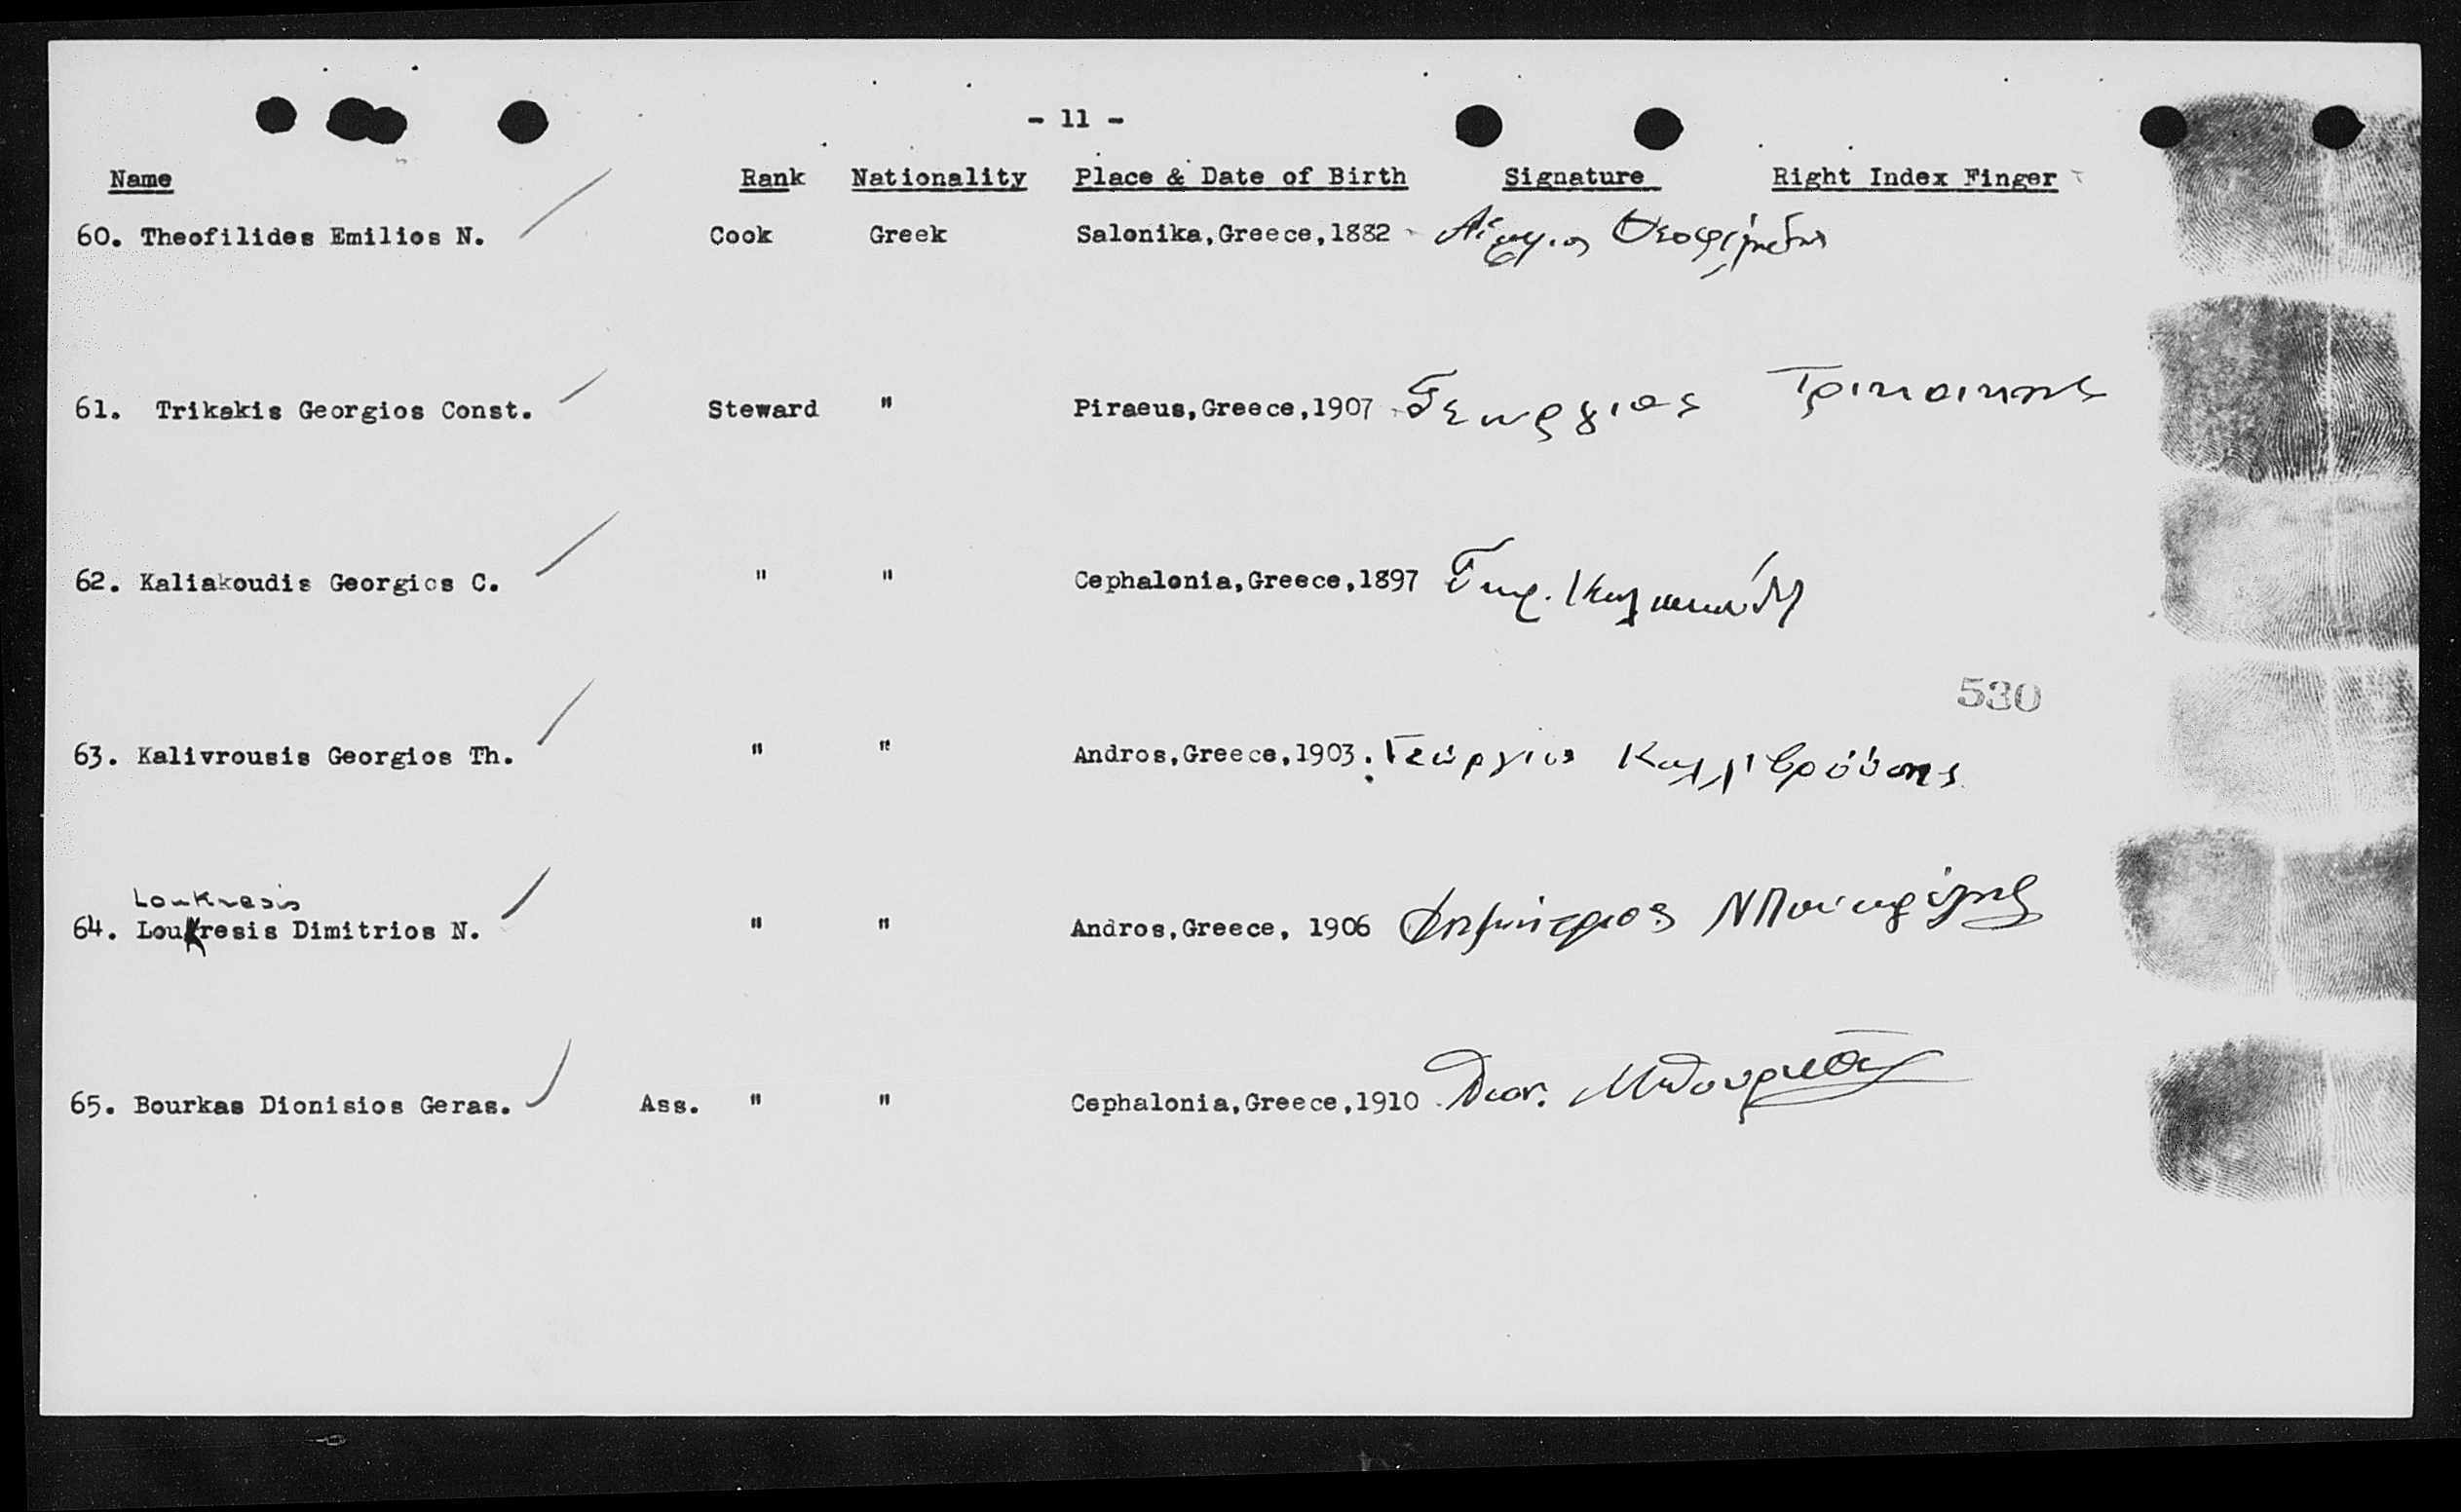 - 11 -
Name Rank Nationality Place & Date of Birth Signature Right Index Finger
60. Theofilides Emilios N. Cook Greek Salonika,Greece,1882
61. Trikakis Georgios Const. Steward " Piraeus,Greece,1907 Γεωργιος
62. Kaliakoudis Georgios C. " " Cephalonia,Greece,1897 Γεωρ.
530
63. Kalivrousis Georgios Th. " " Andros,Greece,1903. Γεώργιος
Loukresis
64. Loukresis Dimitrios N. " " Andros,Greece, 1906 Δημήτριος
65. Bourkas Dionisios Geras. Ass. " " Cephalonia,Greece,1910 Διον.